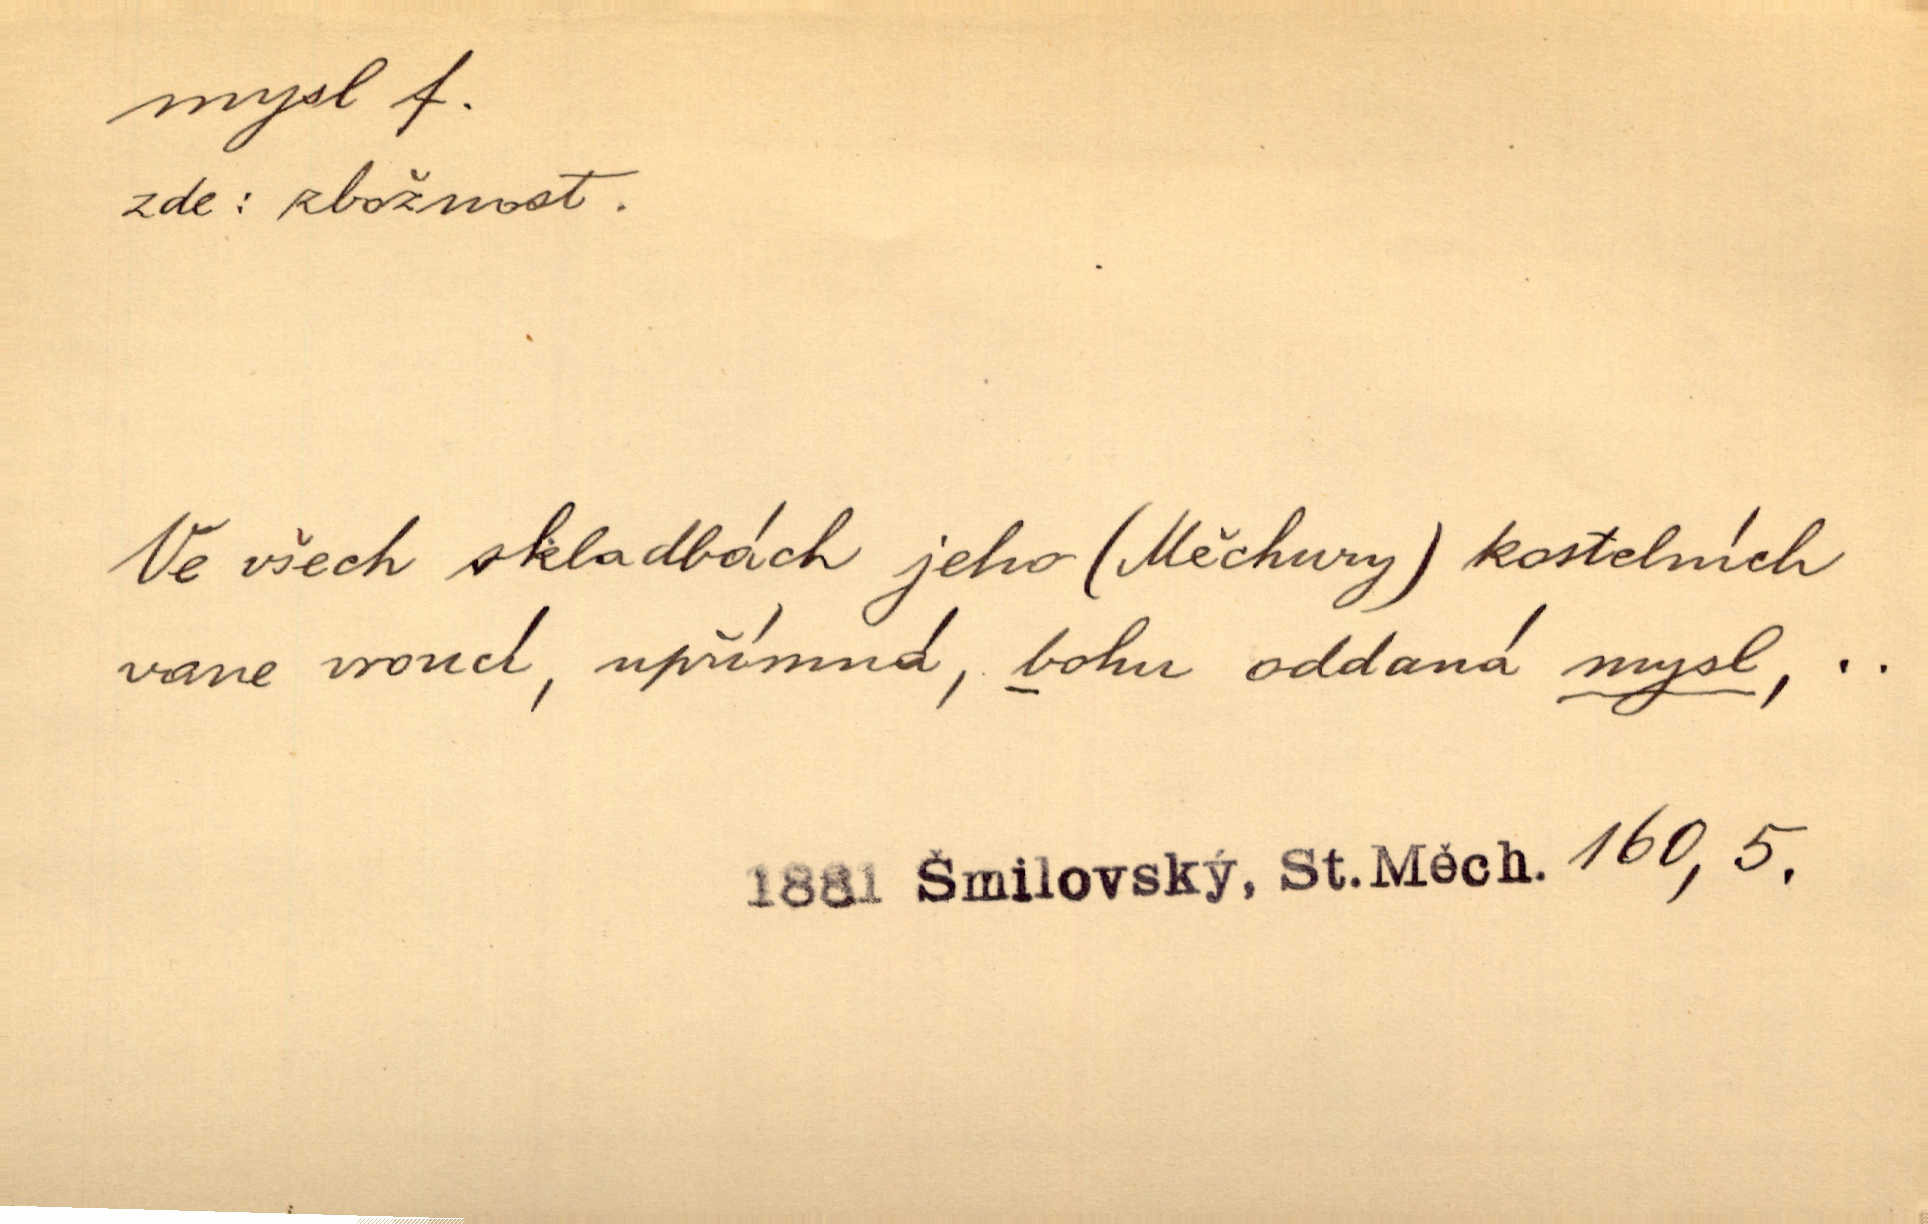 mysl f.
zde: zbožnost.
Ve všech skladbách jeho (Měchury) kostelních
vane vroucí, upřímná, bohu oddaná mysl, ..
1881 Šmilovský, St.Měch. 160, 5.